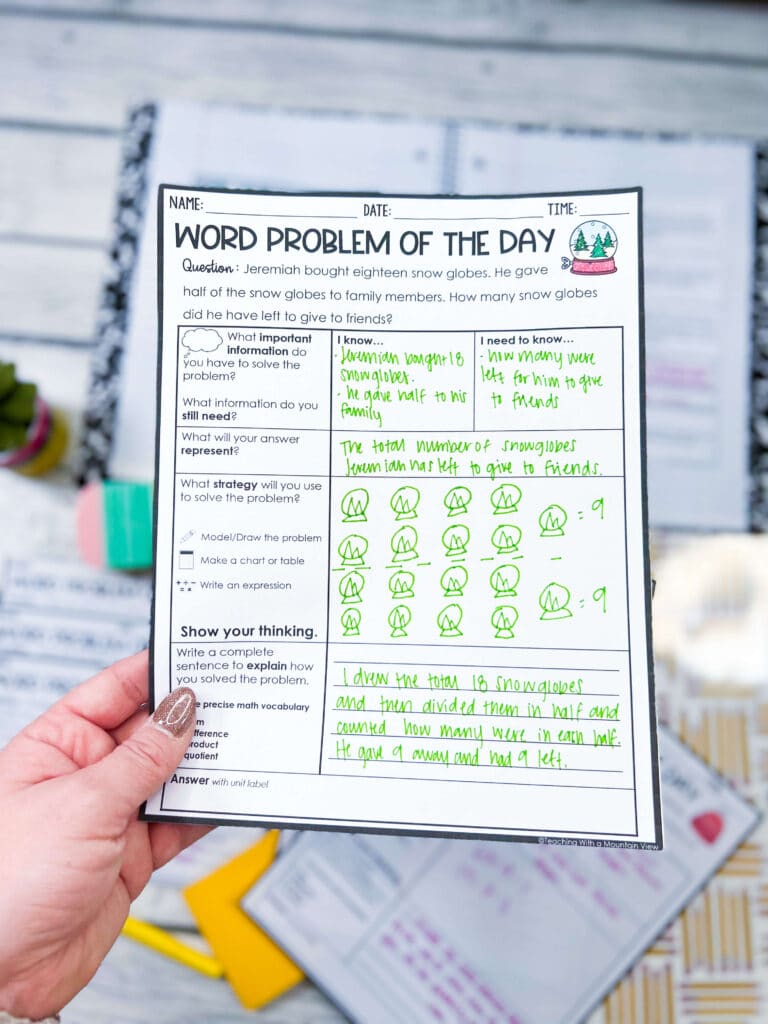 NAME: DATE: TIME:
WORD PROBLEM OF THE DAY
Question: Jeremiah bought eighteen snow globes. He gave
half of the snow globes to family members. How many snow globes
did he have left to give to friends?
What important
information do
you have to solve the
problem?
What information do you
still need?
I know...
· Jeremiah bought 18
snowglobes.
· he gave half to his
family
I need to know...
· how many were
left for him to give
to friends
What will your answer
represent?
The total number of snowglobes
Jeremiah has left to give to friends.
What strategy will you use
to solve the problem?
Model/Draw the problem
Make a chart or table
Write an expression
Show your thinking.
= 9
= 9
Write a complete
sentence to explain how
you solved the problem.
precise math vocabulary
product
quotient
I drew the total 18 snowglobes
and then divided them in half and
counted how many were in each half.
He gave 9 away and had 9 left.
Answer with unit label
©Teaching With a Mountain View